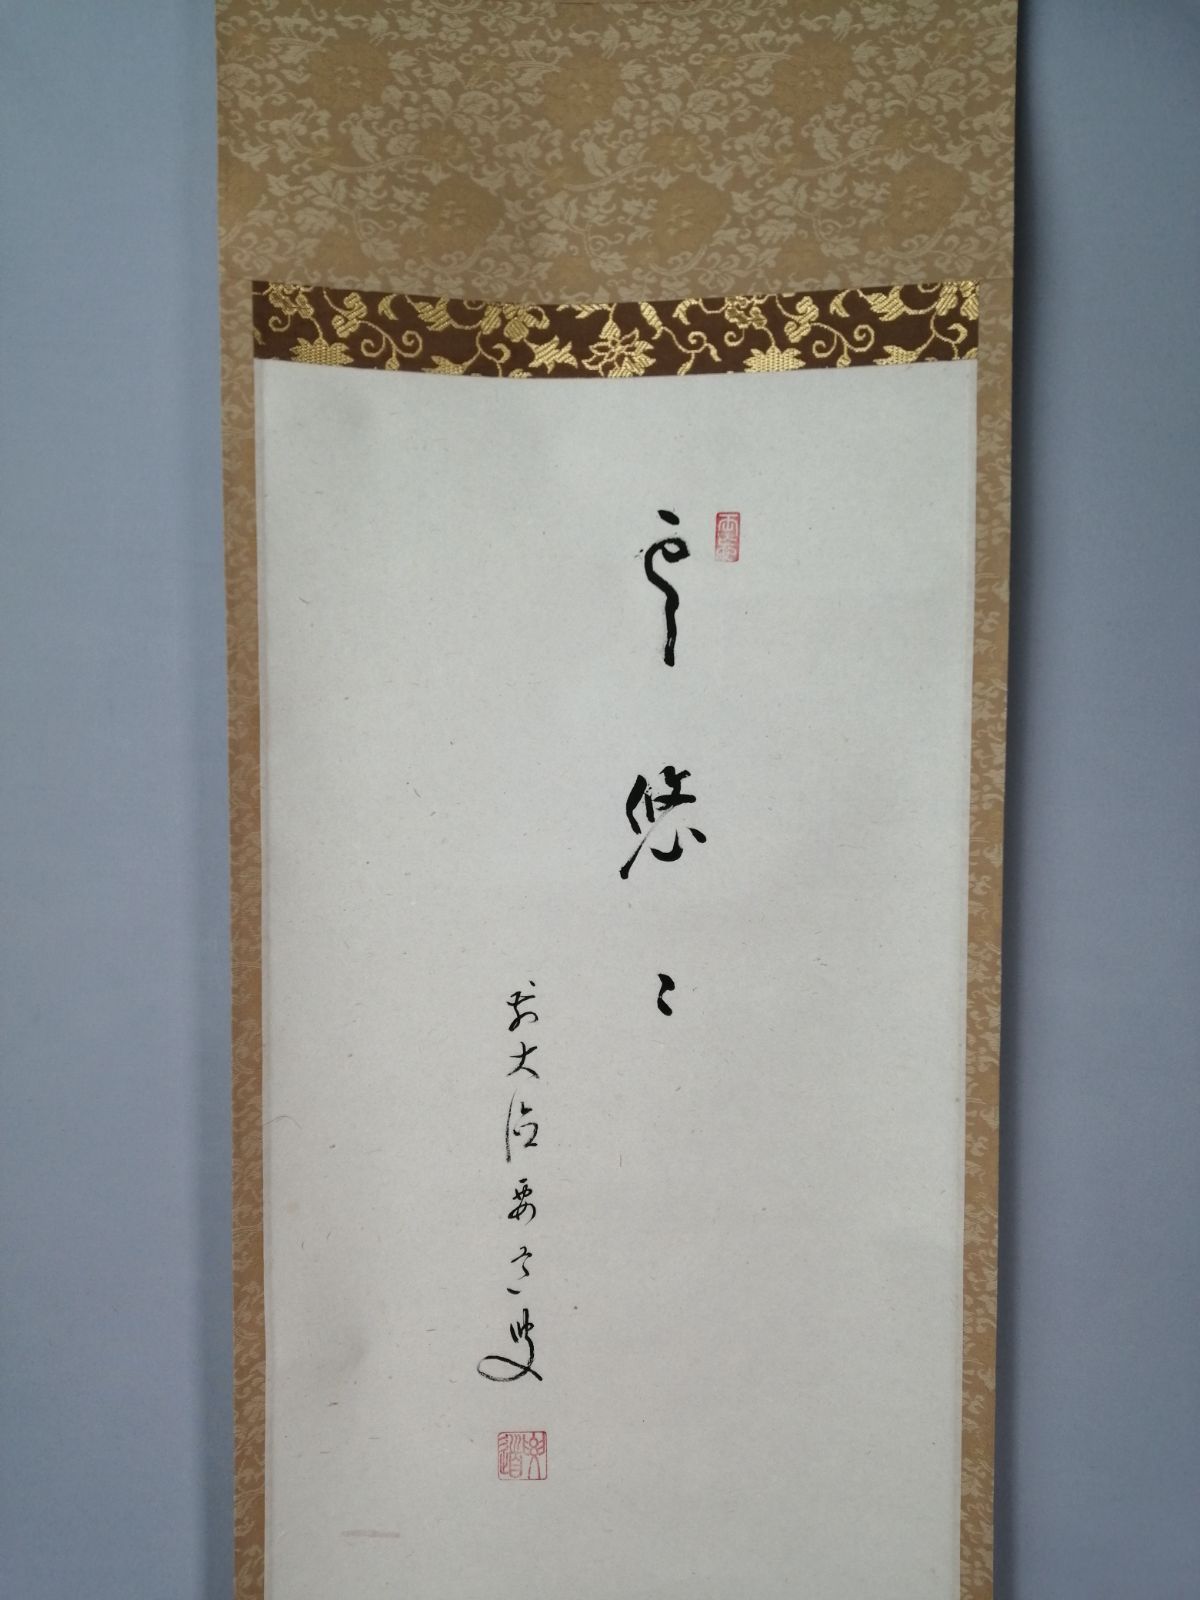 雲悠々
前大徳要道叟